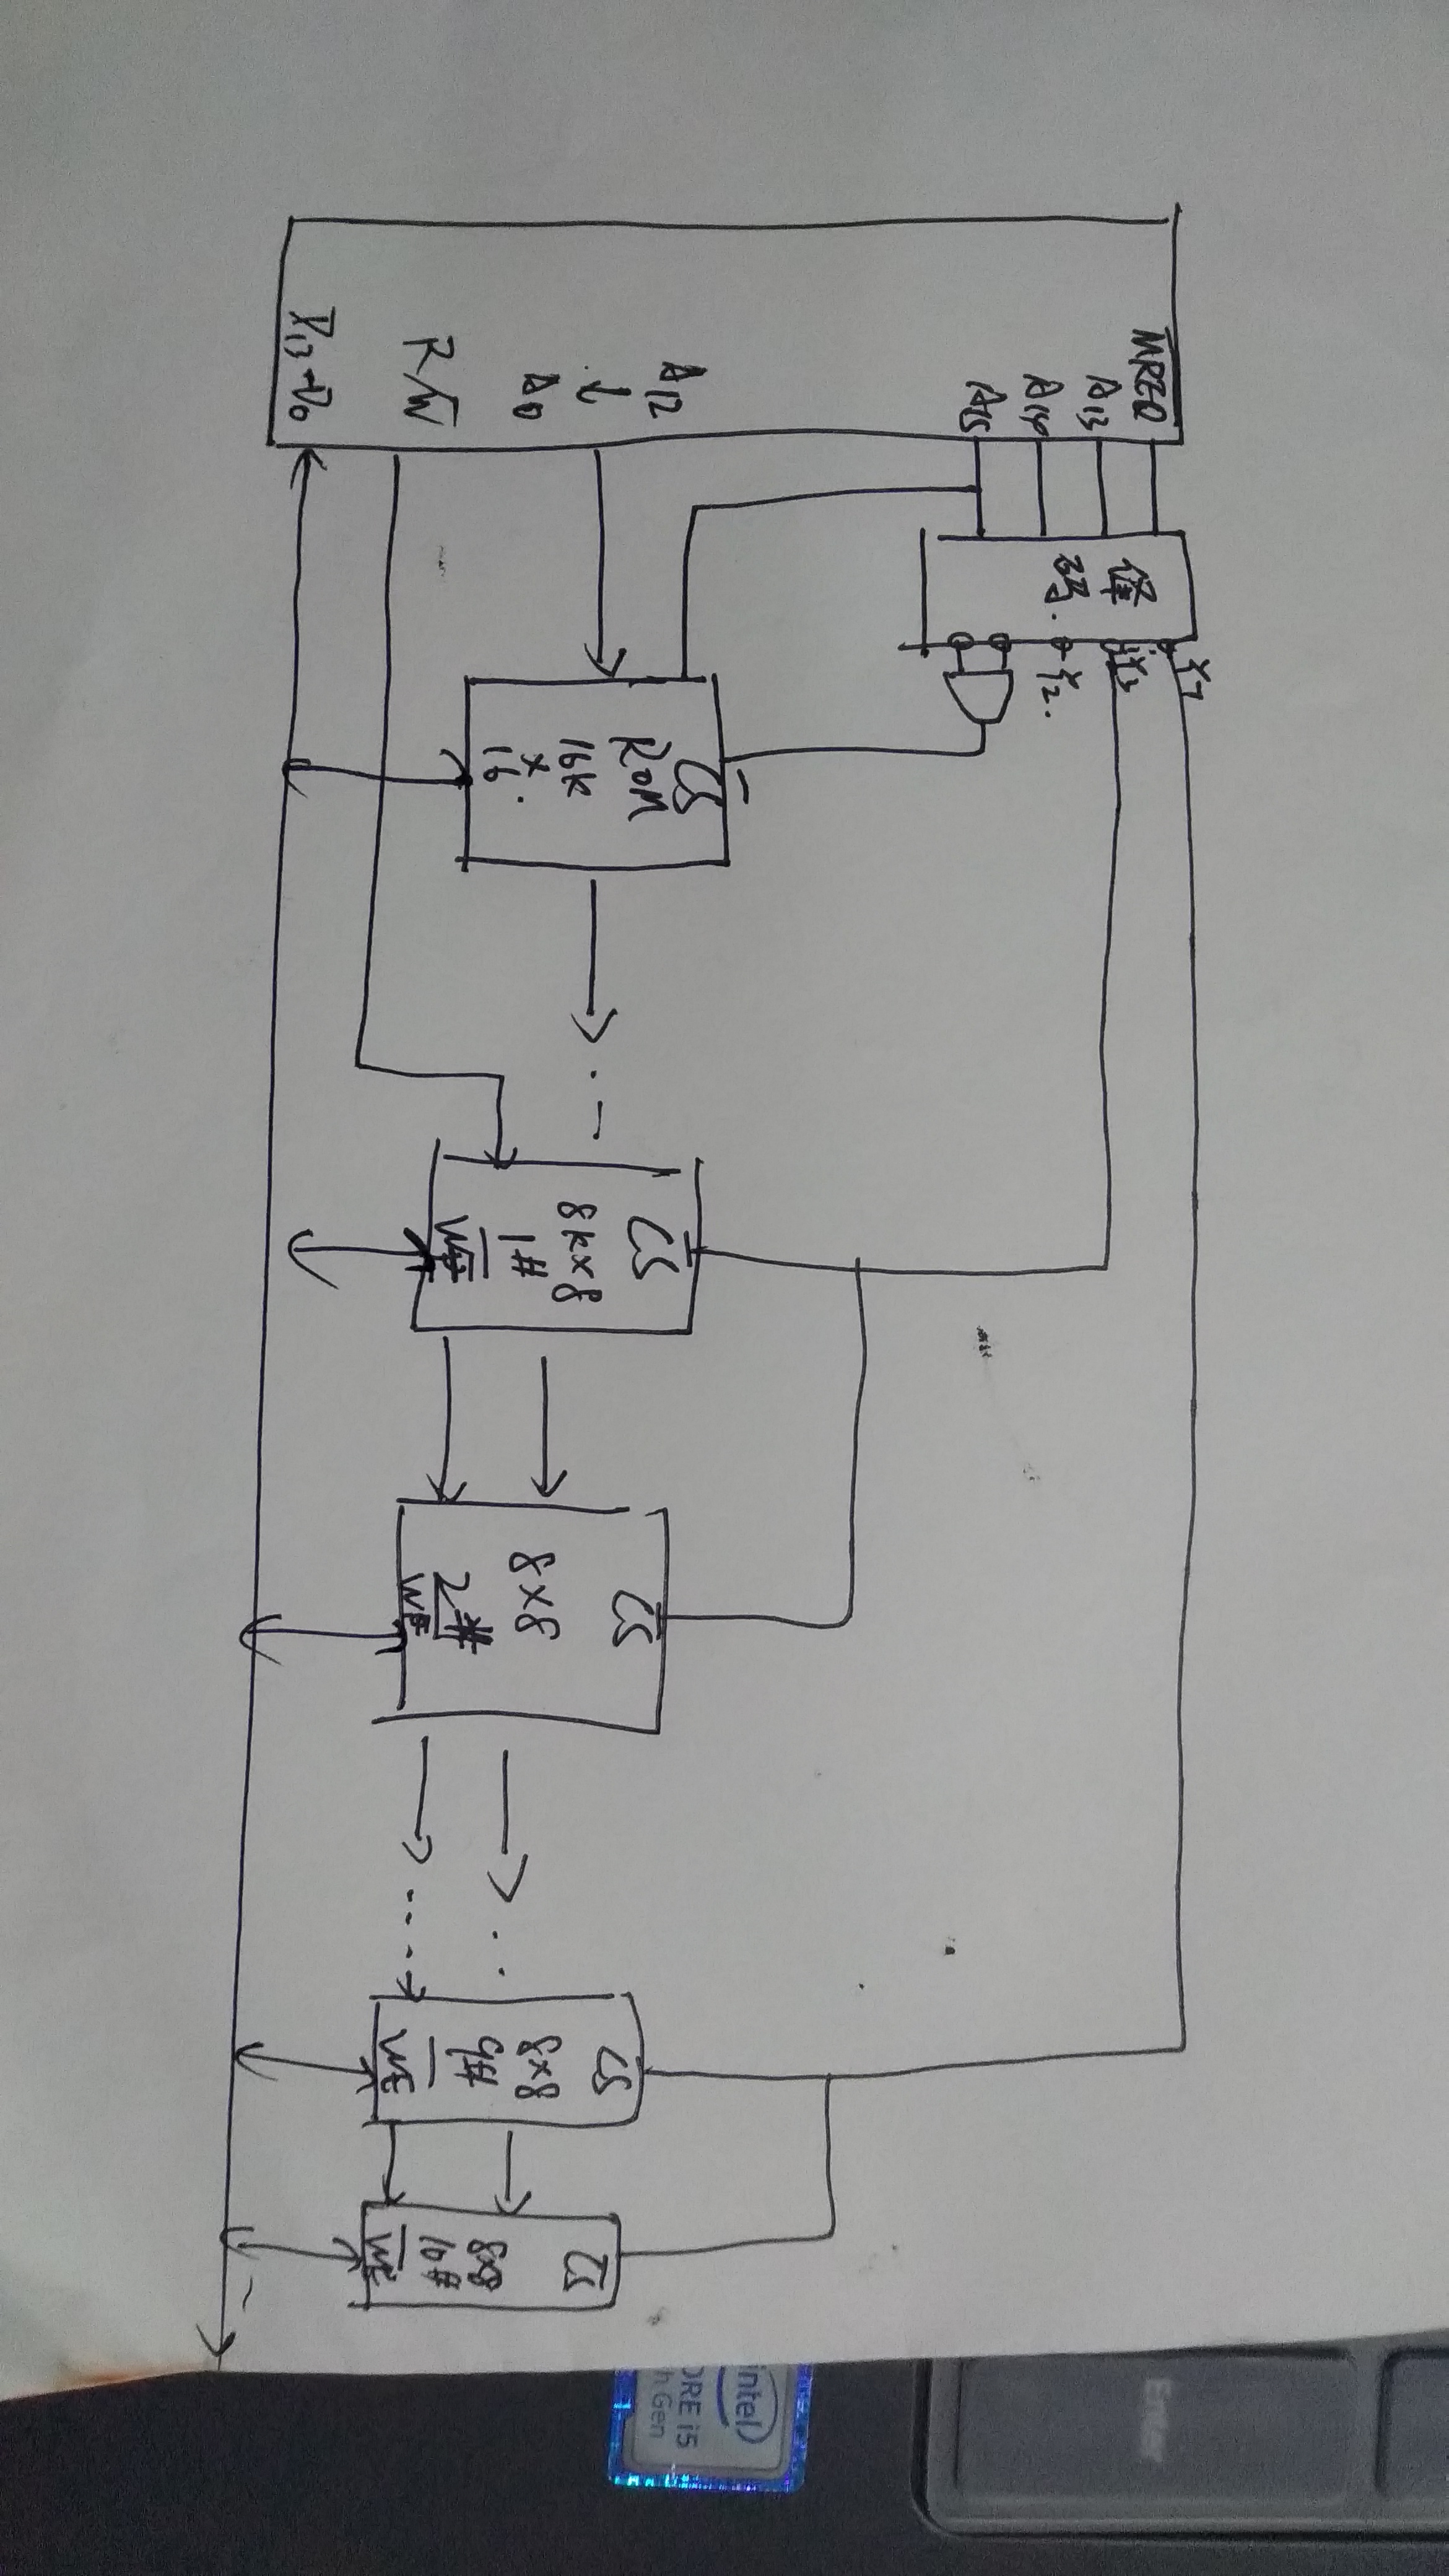 MREQ
A13
A14
A15
A12
↓
A0
R/W
译
码.
Y7
Y3
Y2.
CS
ROM
16K
×
16.
CS
8K×8
1#
WE
CS
8×8
2#
WE
CS
8×8
9#
WE
CS
8×8
10#
WE
intel
ORE i5
h Gen
Enter